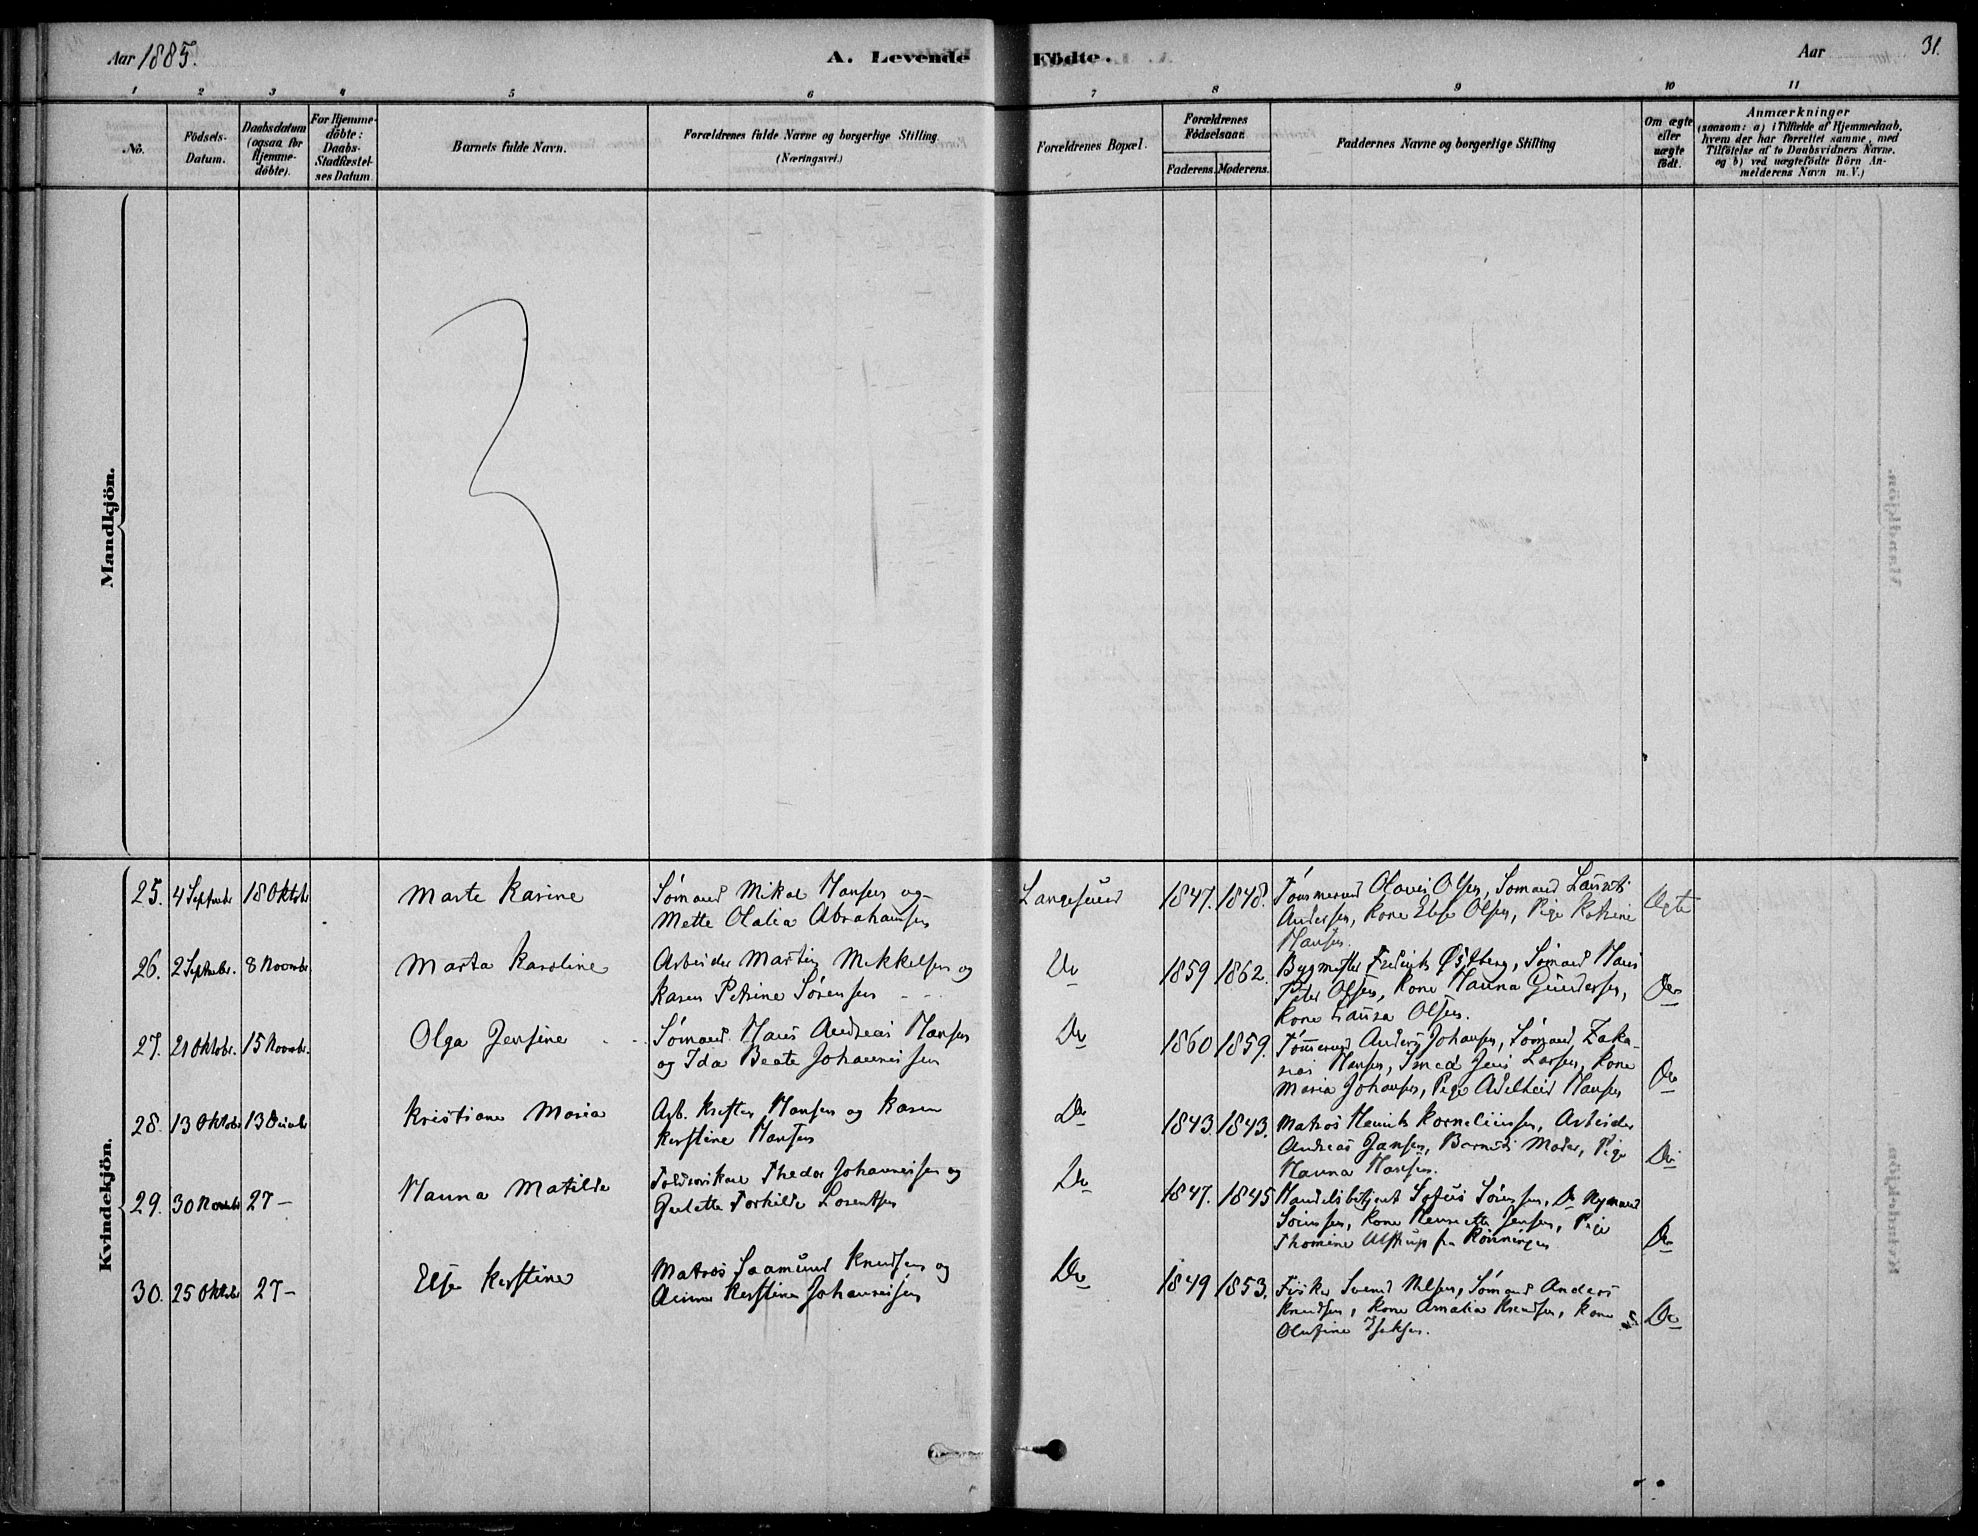 Aar 1885.
A. Levende Födte.
Aar
31.
1 2 3 4 5 6 7 8 9 10 11
No.
Födsels-
Datum.
Daabsdatum
(ogsaa for
Hjemme-
döbte).
For Hjemme-
döbte:
Daabs-
Stadfæstel-
ses Datum.
Barnets fulde Navn.
Forældrenes fulde Navne og borgerlige Stilling.
(Næringsvei.)
Forældrenes Bopæl.
Forældrenes
Födselsaar.
Faderens. Moderens.
Faddernes Navne og borgerlige Stilling
Om ægte
eller
uægte
födt.
Anmærkninger
(saasom: a) i Tilfælde af Hjemmedaab,
hvem der har forrettet samme, med
Tilföielse af to Daabsvidners Navne.
og b) ved uægtefödte Börn An-
melderens Navn m.V.)
Mandkjön.
Kvindekjön.
25. 4 Septmbr 18 Oktobr
Marte Karine
Sömand Mikal Hansen og
Mette Olalia Abrahamsen
Langesund
1847. 1848.
Tömmermd Olavis Olsen, Somand Laurets
Andersen, Kone Else Olsen, Pige Katrine
Hansen.
Ægte
26. 2 Septmbr. 8 Novmbr
Marta Karoline
Arbeider Martin Mikkelsen og
Karen Petrine Sörensen
Do
1859 1862.
Bygmester Fredrik Østberg, Sömand Hans
Peter Olsen, Kone Hanna Gundersen,
Kone Laura Olsen.
Do
27. 21 Oktobr. 15 Novmbr.
Olga Jensine
Sömand Hans Andreas Hansen
og Ida Beate Johannessen
Do
1860 1859.
Tömmermd Anders Johansen, Sömand Zaka-
rias Hansen, Smed Jens Larsen, Kone
Maria Johansen, Pige Adelheid Hansen
Do
28. 13 Oktobr 13 Decmbr
Kristiane Maria
Arb. Krister Hansen og Karen
Kerstine Hansen
Do
1843 1843.
Matros Henrik Korneliussen, Arbeider
Andreas Jansen, Barnets Moder, Pige
Hanna Hansen.
Do
29. 30 Novmbr 27 -
Hanna Matilde
Toldrorskar Thedor Johannessen og
Torhilde Lorentsen
Do
1847. 1845
Handelsbetjent Sofus Sörensen, Do Nymand
Sörensen, Kone Henriette Jensen, Pige
Thomine Alstrup fra Rönningen
Do
30. 25 Oktobr 27 -
Else Kerstine
Matros Saamund Knudsen og
Anne Kerstine Johannessen
Do
1849 1853.
Fisker Svend Nilsen, Sömand Anders
Knudsen, Kone Amalia Knudsen, Kone
Olufine Isaksen.
Do